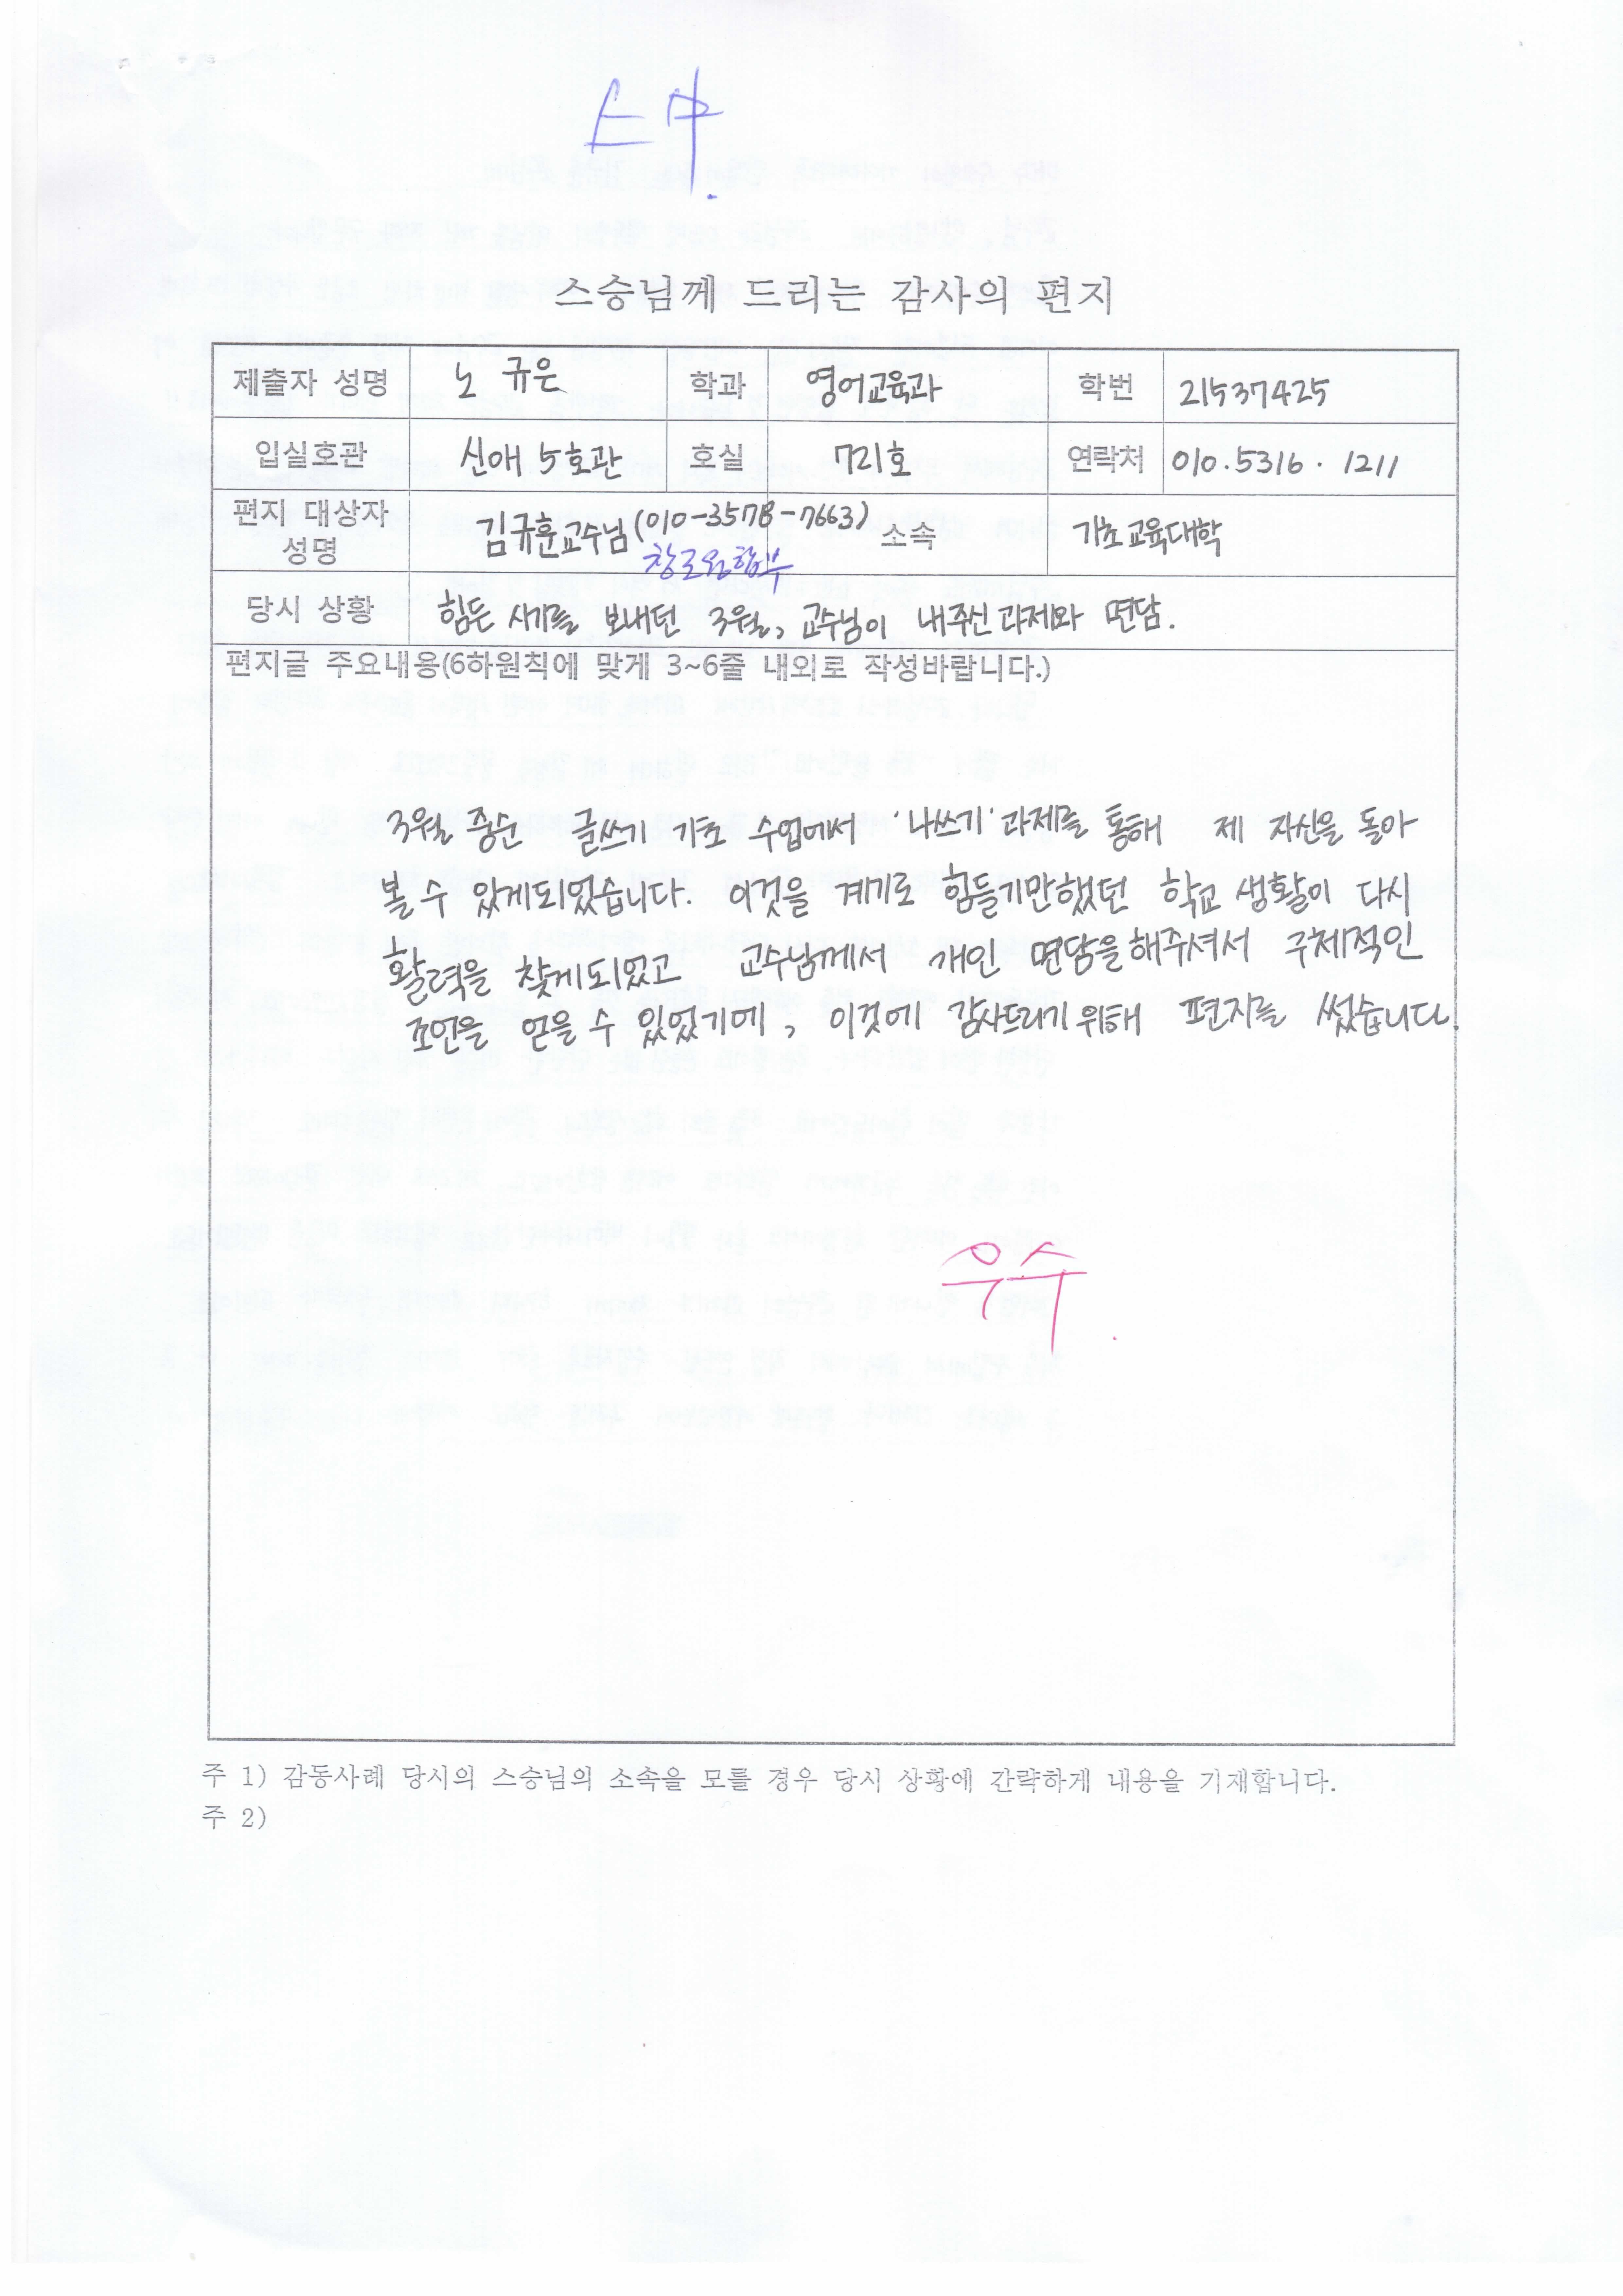 스승님께 드리는 감사의 편지
제출자 성명 노 규은 학과 영어교육과 학번 21537425
입실호관 신애 5호관 호실 721호 연락처 010.5316.1211
편지 대상자 성명 김규훈교수님(010-3578-7663) 소속 기초교육대학
창조융합부
당시 상황 힘든 시기를 보내던 3월, 교수님이 내주신 과제와 면담.
편지글 주요내용(6하원칙에 맞게 3~6줄 내외로 작성바랍니다.)
3월 중순 글쓰기 기초 수업에서 '나쓰기' 과제를 통해 제 자신을 돌아
볼 수 있게되었습니다. 이것을 계기로 힘들기만했던 학교 생활이 다시
활력을 찾게되었고 교수님께서 개인 면담을해주셔서 구체적인
조언을 얻을 수 있었기에, 이것에 감사드리기 위해 편지를 썼습니다.
우수.
주 1) 감동사례 당시의 스승님의 소속을 모를 경우 당시 상황에 간략하게 내용을 기재합니다.
주 2)